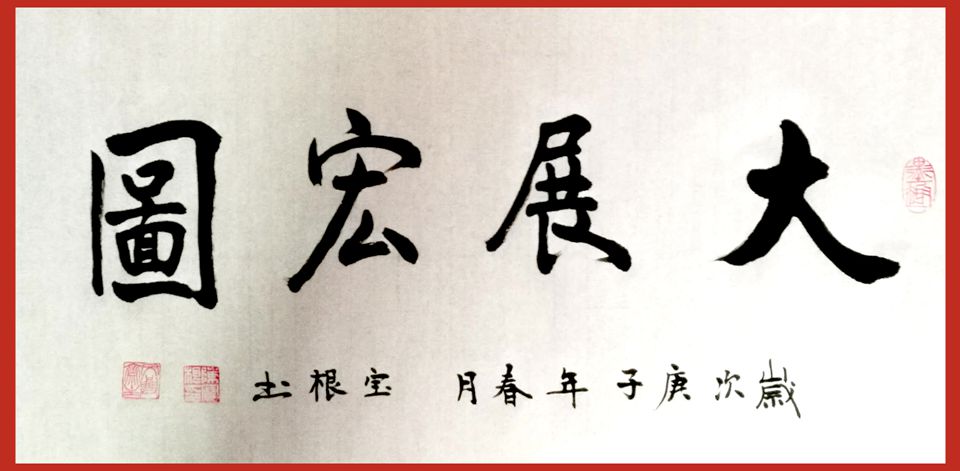 大展宏圖
歲次庚子年春月 宝根书